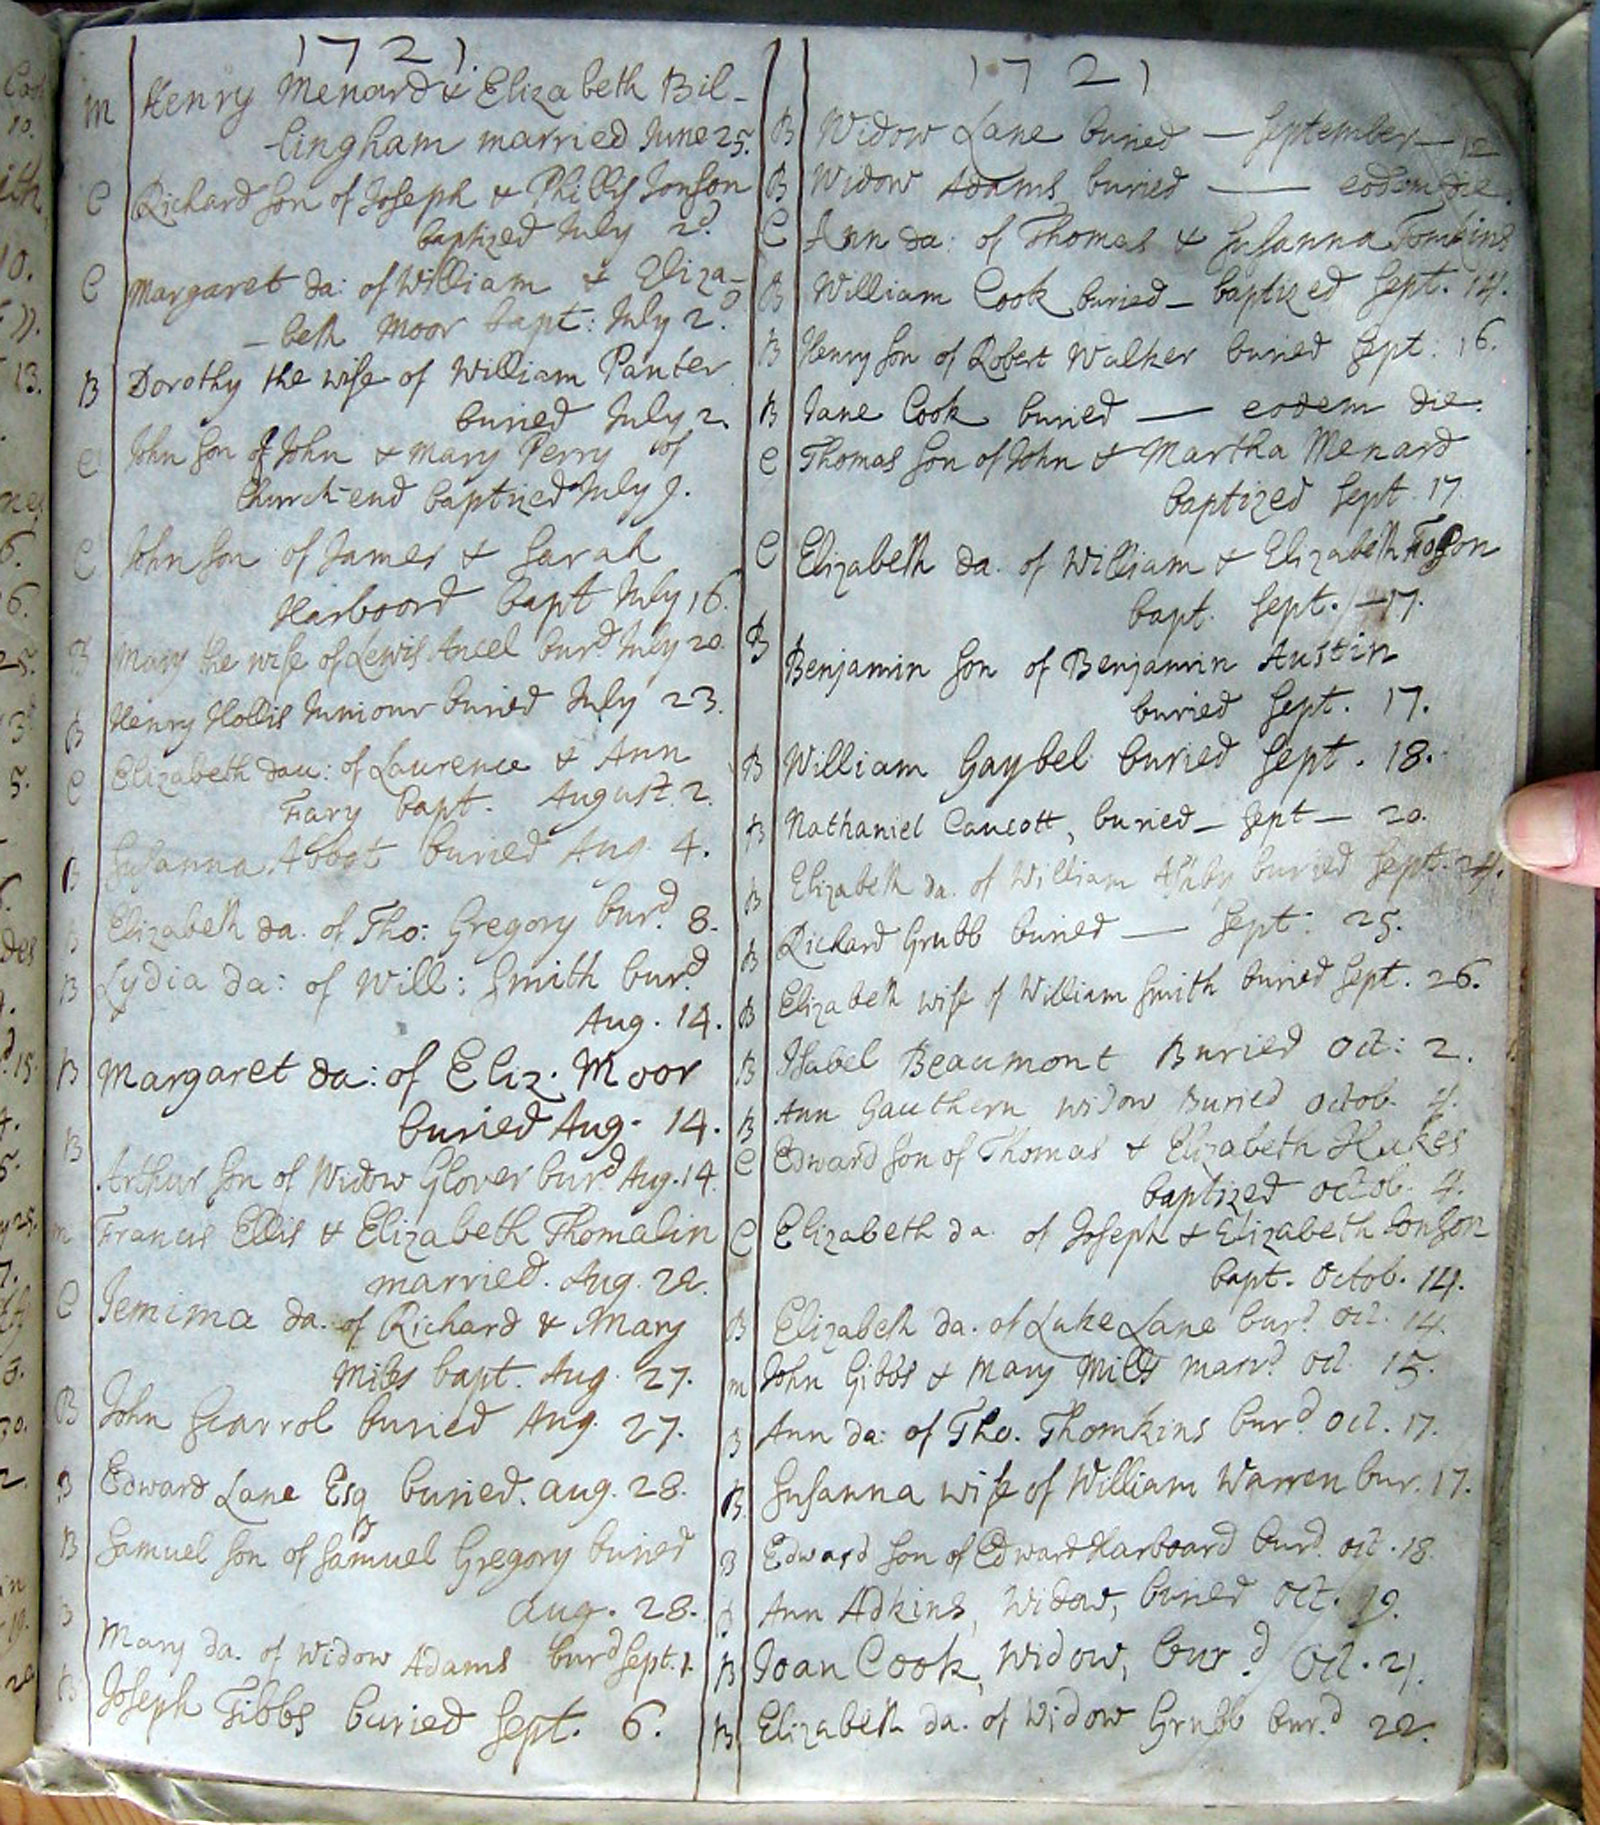 1721.
M Henry Menard & Elizabeth Bil-
lingham married June 25.
C Richard Son of Joseph & Phillis Jonson
baptized July 2d.
C Margaret da: of William & Eliza-
- beth Moor bapt: July 2d.
B Dorothy the wife of William Panter
buried July 2.
C John Son of John & Mary Perry of
Church-end baptized July 9.
C John Son of James & Sarah
Harboord bapt July 16.
B Mary the wife of Lewis Ancel burd. July 20.
B Henry Hollis Juniour buried July 23.
C Elizabeth dau: of Laurence & Ann
Fary bapt. August. 2.
B Susanna Abbot buried Aug. 4.
B Elizabeth da. of Tho: Gregory burd. 8.
B Lydia da: of Will: Smith burd.
Aug. 14.
B Margaret da: of Eliz. Moor
buried Aug. 14.
B Arthur Son of Widow Glover burd. Aug. 14.
m Francis Ellis & Elizabeth Thomalin
married. Aug. 22.
C Jemima da. of Richard & Mary
Miles bapt. Aug. 27.
B John Scarrol buried Aug. 27.
B Edward Lane Esq buried. aug. 28.
B Samuel Son of Samuel Gregory buried
aug. 28.
B Mary da. of Widow Adams burd Sept. 1.
B Joseph Tibbs buried Sept. 6.
1721
B Widow Lane buried — September — 12
B Widow Adams buried — eodem die.
C Ann da: of Thomas & Susanna Tomkins
B William Cook buried — baptized Sept. 14.
B Henry Son of Robert Walker buried Sept. 16.
B Jane Cook buried — eodem die.
C Thomas Son of John & Martha Menard
baptized Sept. 17
C Elizabeth da. of William & Elizabeth
bapt. Sept. — 17.
B Benjamin Son of Benjamin Austin
buried Sept. 17.
B William Gaybel buried Sept. 18.
B Nathaniel Caucott, buried — Sept — 20.
B Elizabeth da. of William Ashby buried Sept. 24.
B Richard Grubb buried — Sept: 25.
B Elizabeth wife of William Smith buried Sept. 26.
B Isabel Beaumont Buried Oct: 2.
B Ann Gauthern widow Buried Octob. 4.
C Edward Son of Thomas & Elizabeth Hukes
baptized Octob. 4.
C Elizabeth da. of Joseph & Elizabeth Jonson
bapt. Octob. 14.
B Elizabeth da. of Luke Lane burd. Oct. 14.
m John Gibbs & Mary Mills marrd. Oct. 15.
B Ann da: of Tho. Thomkins burd. Oct. 17.
B Susanna wife of William Warren bur. 17.
B Edward Son of Edward Harboard burd. Oct. 18.
B Ann Adkins, Widow, buried Oct. 19.
B Joan Cook, Widow, burd. Oct. 21.
B Elizabeth da. of Widow Grubb burd. 22.